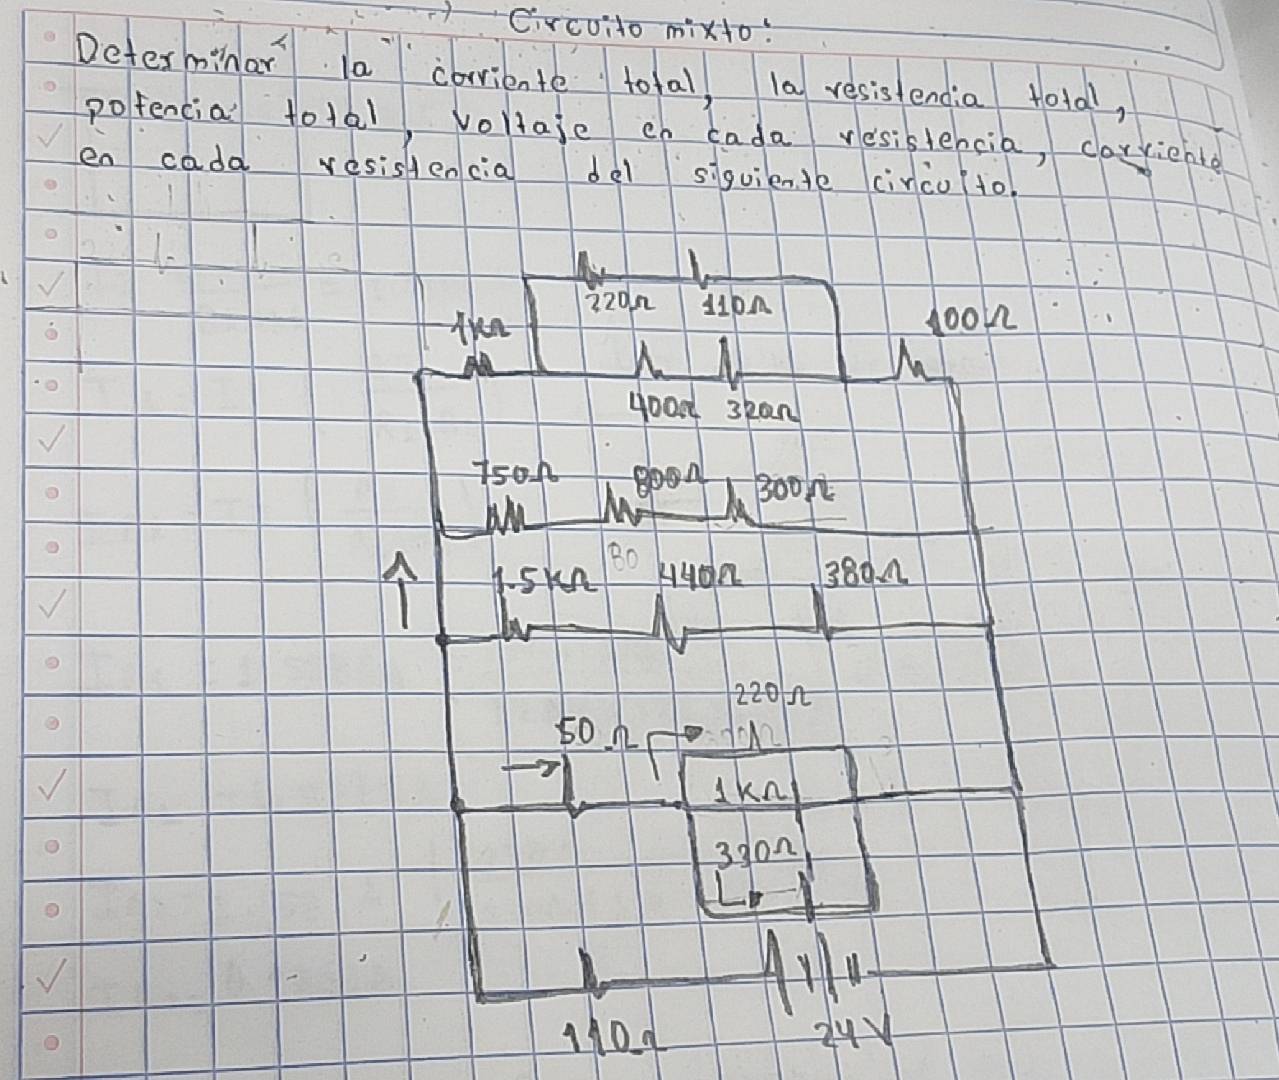 Circuito mixto:
Determinar la corriente total, la resistencia total,
potencia total, voltaje en cada resistencia, corriente
en cada resistencia del siguiente circuito.
220Ω 110Ω
1kΩ 100Ω
400Ω 320Ω
750Ω 800Ω 300Ω
80
1.5kΩ 440Ω 380Ω
220Ω
50Ω
1kΩ
330Ω
110Ω 24V